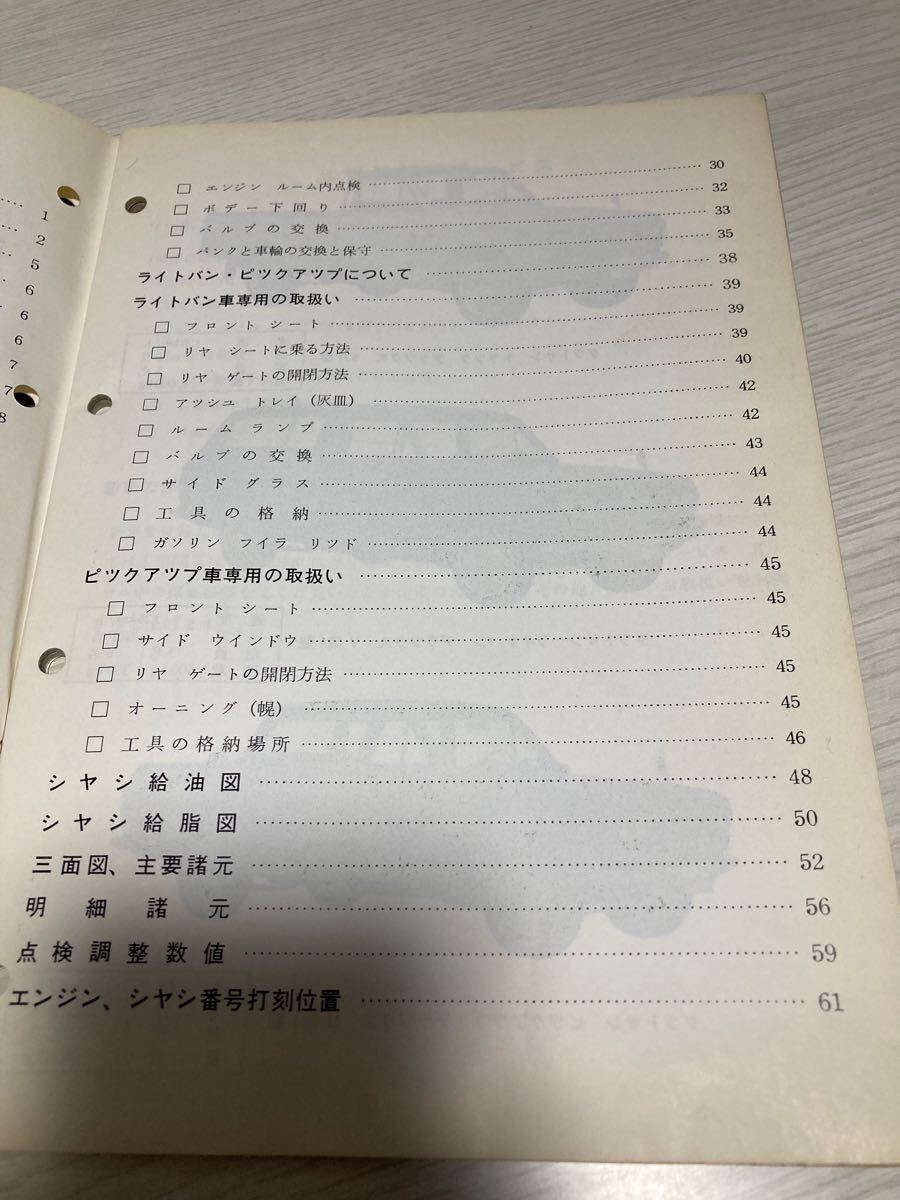 1
2
5
6
6
6
7
7
8
□ エンジン ルーム内点検 …… 30
□ ボデー下回り …… 32
□ バルブの交換 …… 33
□ パンクと車輪の交換と保守 …… 35
ライトバン・ピツクアツプについて …… 38
ライトバン車専用の取扱い …… 39
□ フロント シート …… 39
□ リヤ シートに乗る方法 …… 39
□ リヤ ゲートの開閉方法 …… 40
□ アツシユ トレイ (灰皿) …… 42
□ ルーム ランプ …… 42
□ バルブの交換 …… 43
□ サイド グラス …… 44
□ 工具の格納 …… 44
□ ガソリン フイラ リツド …… 44
ピツクアツプ車専用の取扱い …… 45
□ フロント シート …… 45
□ サイド ウインドウ …… 45
□ リヤ ゲートの開閉方法 …… 45
□ オーニング (幌) …… 45
□ 工具の格納場所 …… 46
シヤシ給油図 …… 48
シヤシ給脂図 …… 50
三面図、主要諸元 …… 52
明細諸元 …… 56
点検調整数値 …… 59
エンジン、シヤシ番号打刻位置 …… 61